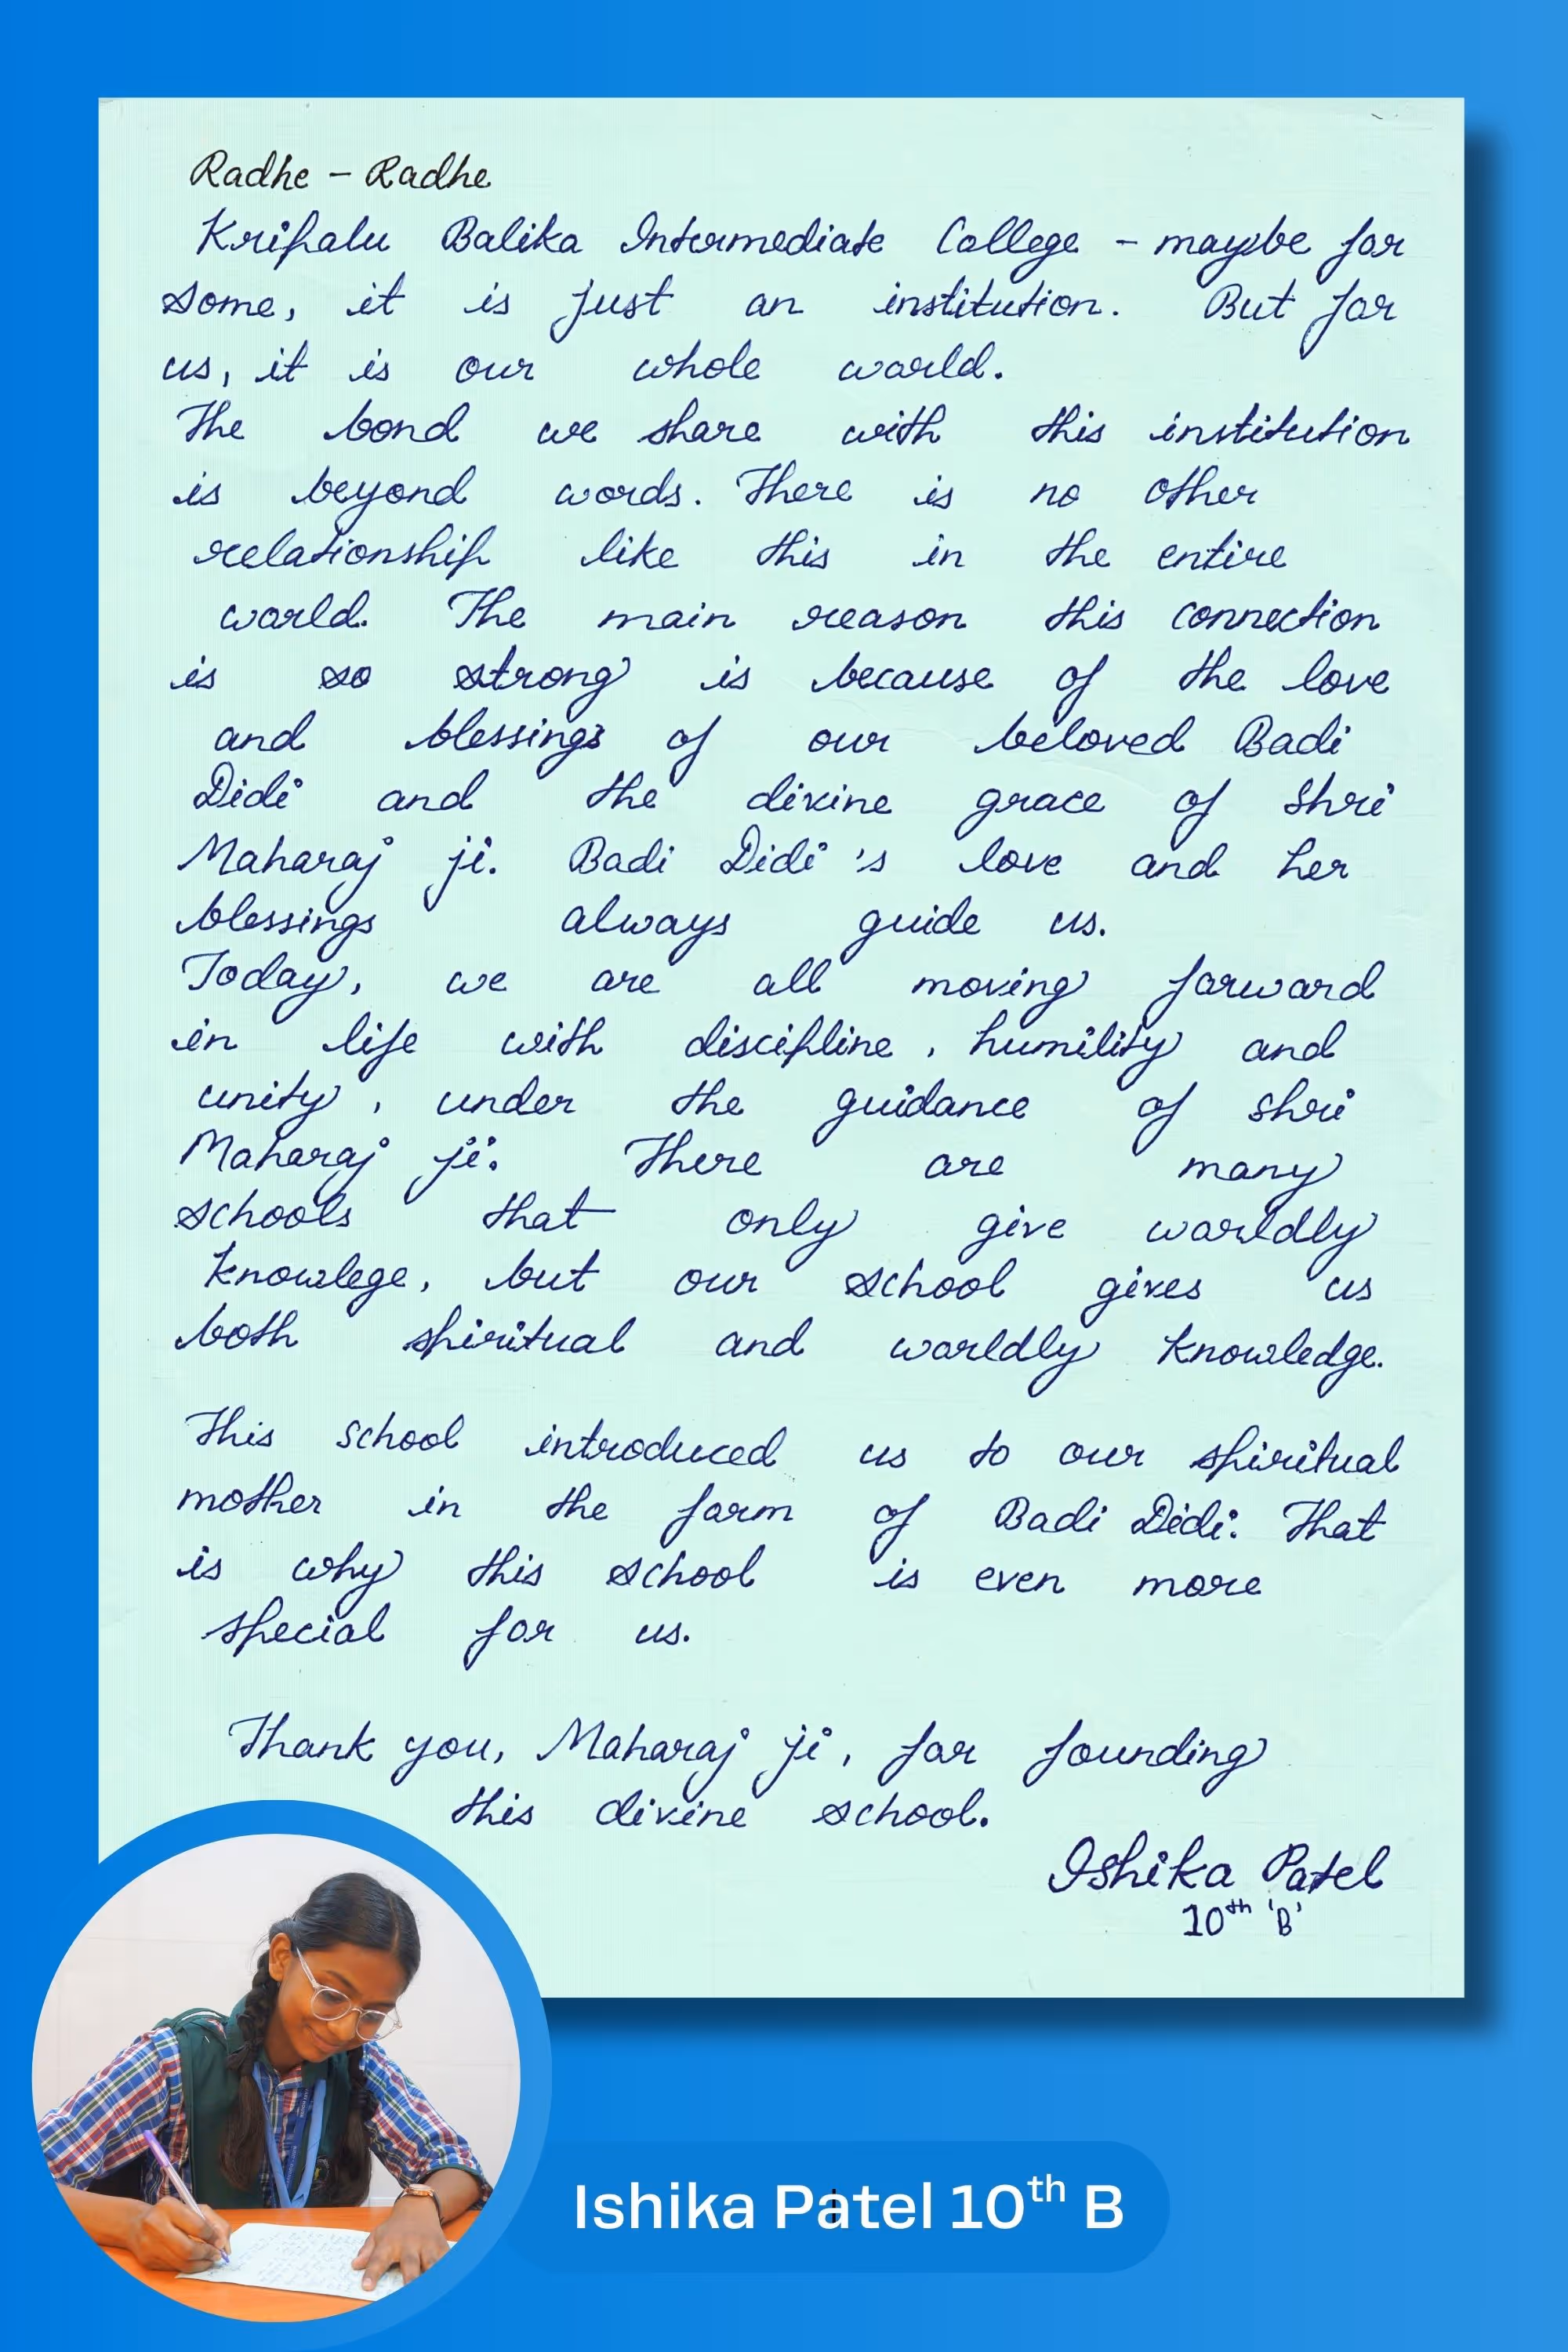 Radhe - Radhe
Kripalu Balika Intermediate College - maybe for
some, it is just an institution. But for
us, it is our whole world.
The bond we share with this institution
is beyond words. There is no other
relationship like this in the entire
world. The main reason this connection
is so strong is because of the love
and blessings of our beloved Badi
Didi and the divine grace of Shri
Maharaj ji. Badi Didi's love and her
blessings always guide us.
Today, we are all moving forward
in life with discipline, humility and
unity, under the guidance of shri
Maharaj ji. There are many
schools that only give worldly
knowlege, but our school gives us
both spiritual and worldly knowledge.
This school introduced us to our spiritual
mother in the form of Badi Didi. That
is why this school is even more
special for us.
Thank you, Maharaj ji, for founding
this divine school.
Ishika Patel
10th 'B'
Ishika Patel 10th B